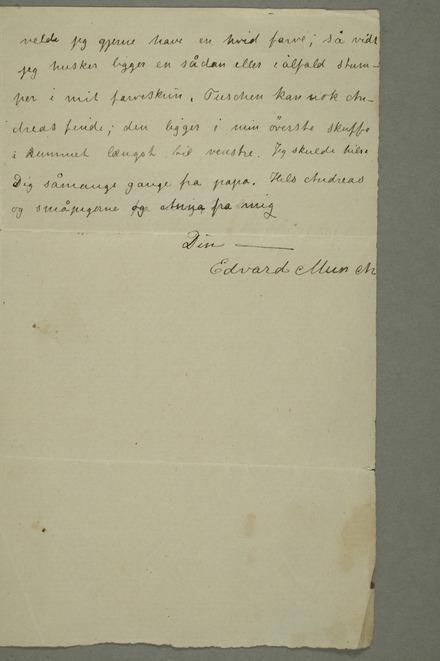 velde jeg gjerne have en hvid farve; så vidt
jeg husker ligger en sådan eller i alfald stum-
per i mit farveskrin. Tuschen kan nok An-
dreas finde; den ligger i min överste skuffe
i Rummet længst til venstre. Jeg skulde hilse
Dig såmange gange fra papa. Hils Andreas
og småpigerne og Anna fra mig
Din —
Edvard Munch